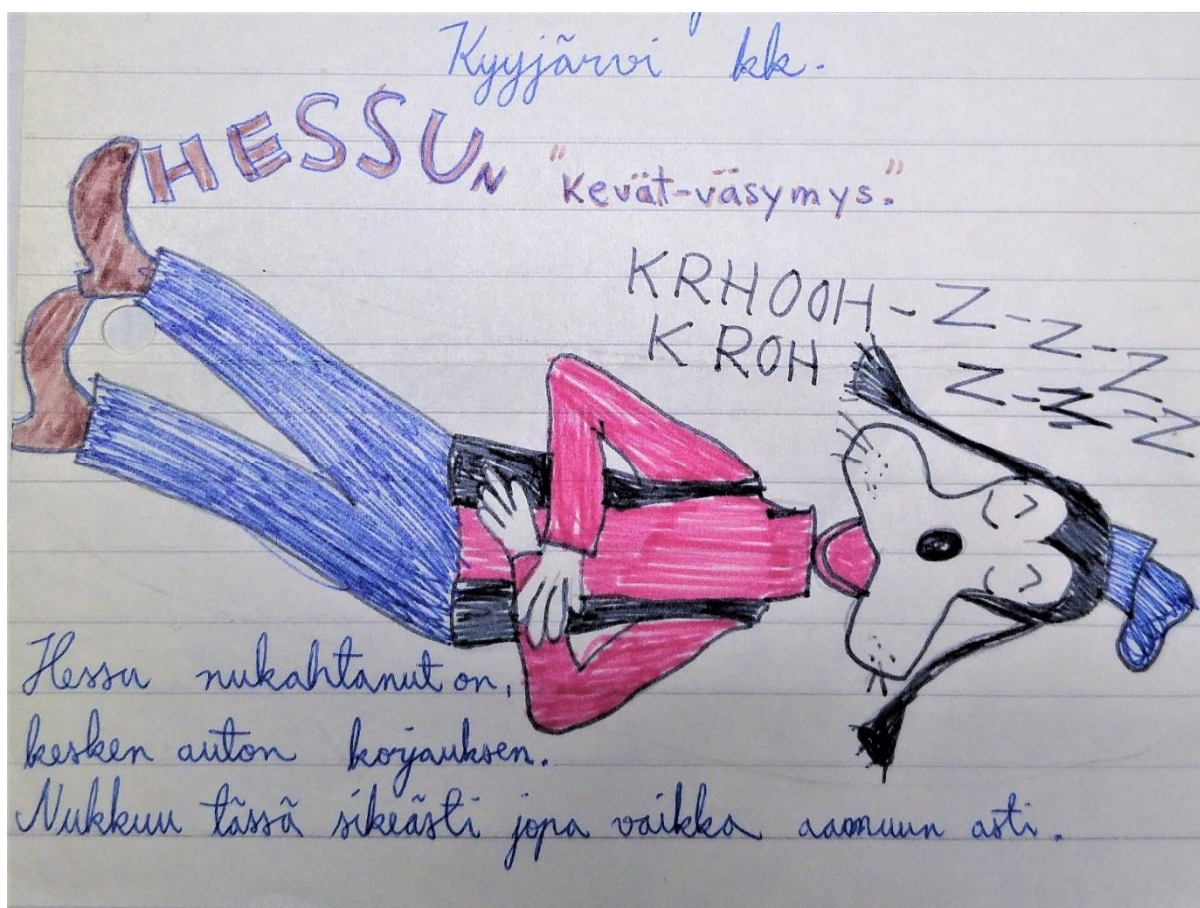 Kyyjärvi kk.
HESSUN "kevät-väsymys."
KRHOOH-Z-Z-Z
KROH Z-Z-Z
Hessu nukahtanut on,
kesken auton korjauksen.
Nukkuu tässä sikeästi jopa vaikka aamuun asti.